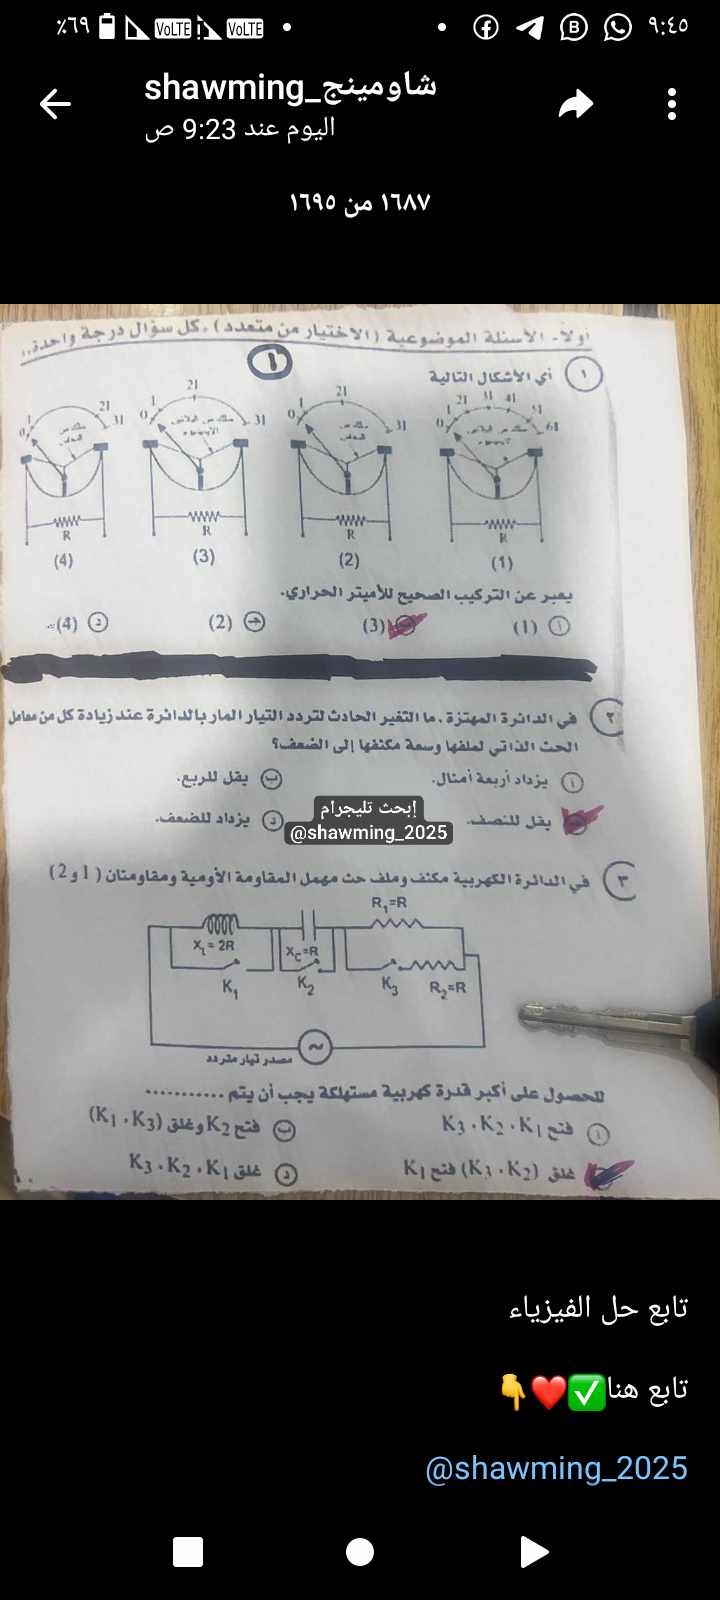 ٩:٤٥
٪٦٩
VoLTE
VoLTE
shawming_شاومينج
اليوم عند 9:23 ص
١٦٨٧ من ١٦٩٥
اولاً- الأسئلة الموضوعية (الاختيار من متعدد)، كل سؤال درجة واحدة..
١
١ أي الأشكال التالية
0 I 2I 3I 4I 5I 6I
R
(1)
0 I 2I 3I
R
(2)
0 I 2I 3I
R
(3)
0 I 2I 3I
R
(4)
يعبر عن التركيب الصحيح للأميتر الحراري.
ا (1)
(3)
ج (2)
د (4)
٢ في الدائرة المهتزة، ما التغير الحادث لتردد التيار المار بالدائرة عند زيادة كل من معامل
الحث الذاتي لملفها وسعة مكثفها إلى الضعف؟
ا يزداد أربعة أمثال.
ب يقل للربع.
يقل للنصف.
د يزداد للضعف.
إبحث تليجرام
@shawming_2025
٣ في الدائرة الكهربية مكثف وملف حث مهمل المقاومة الأومية ومقاومتان (1 و 2)
R₁=R
X_L = 2R
X_C=R
K₁
K₂
K₃
R₂=R
مصدر تيار متردد
للحصول على أكبر قدرة كهربية مستهلكة يجب أن يتم ...........
ا فتح K₁ ، K₂ ، K₃
ب فتح K₂ وغلق (K₁ ، K₃)
غلق (K₂ ، K₃) فتح K₁
د غلق K₁ ، K₂ ، K₃
تابع حل الفيزياء
تابع هنا✅❤️👇
@shawming_2025